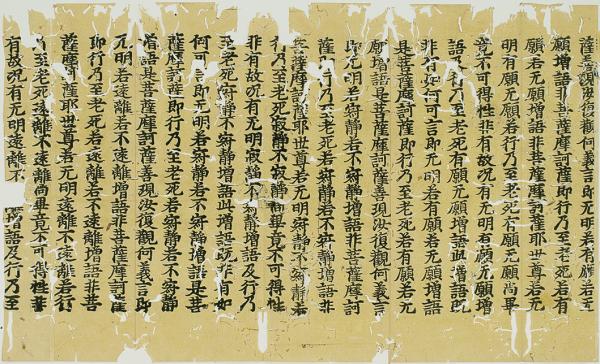 薩善現汝復觀何義言即无明若有願若无
願增語非菩薩摩訶薩即行乃至老死若有
願若无願增語非菩薩摩訶薩耶世尊若无
明有願无願若行乃至老死有願无願尚畢
竟不可得性非有故況有无明有願无願增
語行乃至老死有願无願增語此增語既
非有如何可言即无明若有願若无願增語
是菩薩摩訶薩即行乃至老死若有願若无
願增語是菩薩摩訶薩善現汝復觀何義言
即无明若寂靜若不寂靜增語非菩薩摩訶
薩行乃至老死若寂靜若不寂靜增語非
薩摩訶薩耶世尊若无明寂靜不寂靜若
行乃至老死寂靜不寂靜尚畢竟不可得性
非有故況有无明寂靜不寂靜增語及行乃
至老死寂靜不寂靜增語此增語既非有如
何可言即无明若寂靜若不寂靜增語是菩
薩摩訶薩即行乃至老死若寂靜若不寂靜
增語是菩薩摩訶薩善現汝復觀何義言即
无明若遠離若不遠離增語非菩薩摩訶薩
即行乃至老死若遠離若不遠離增語非菩
薩摩訶薩耶世尊若无明遠離不遠離若行
至老死遠離不遠離尚畢竟不可得性非
有故況有无明遠離不增語及行乃至